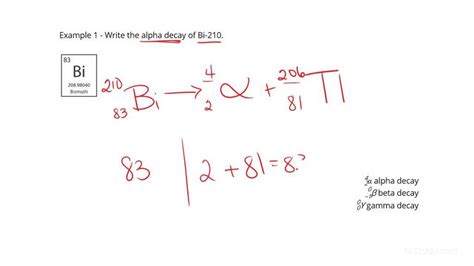 Example 1 - Write the alpha decay of Bi-210.
83
Bi
208.98040
Bismuth
²¹⁰₈₃Bi → ⁴₂α + ²⁰⁶₈₁Tl
83 | 2 + 81 = 83
⁴₂α alpha decay
⁰₋₁β beta decay
⁰₀γ gamma decay